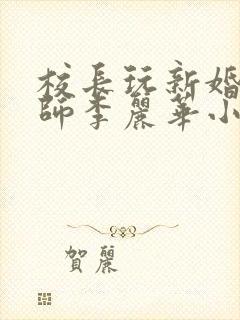 校長玩新婚
師李麗華小
賀麗